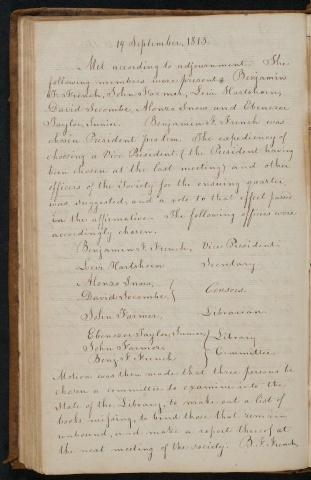 14 September, 1813.
Met according to adjournment. The
following members were present; Benjamin
F. French, John Farmer, Levi Hartshorn,
David Secombe, Alonzo Snow and Ebenezer
Taylor, Junior. Benjamin F. French was
chosen President pro tem. The expediency of
choosing a Vice President (the President having
been chosen at the last meeting) and other
officers of the Society for the ensuing quarter
was suggested, and a vote to that effect passed
in the affirmative. The following officers were
accordingly chosen.
Benjamin F. French, Vice President.
Levi Hartshorn Secretary.
Alonzo Snow,
David Secombe, } Censors.
John Farmer, Librarian.
Ebenezer Taylor, Junior { Library
John Farmer
Benj. F. French { Committee.
Motion was then made that three persons be
chosen a committee to examine into the
State of the Library, to make out a list of
books missing, to bind those that remain
unbound, and make a report thereof at
the next meeting of the society. B. F. French